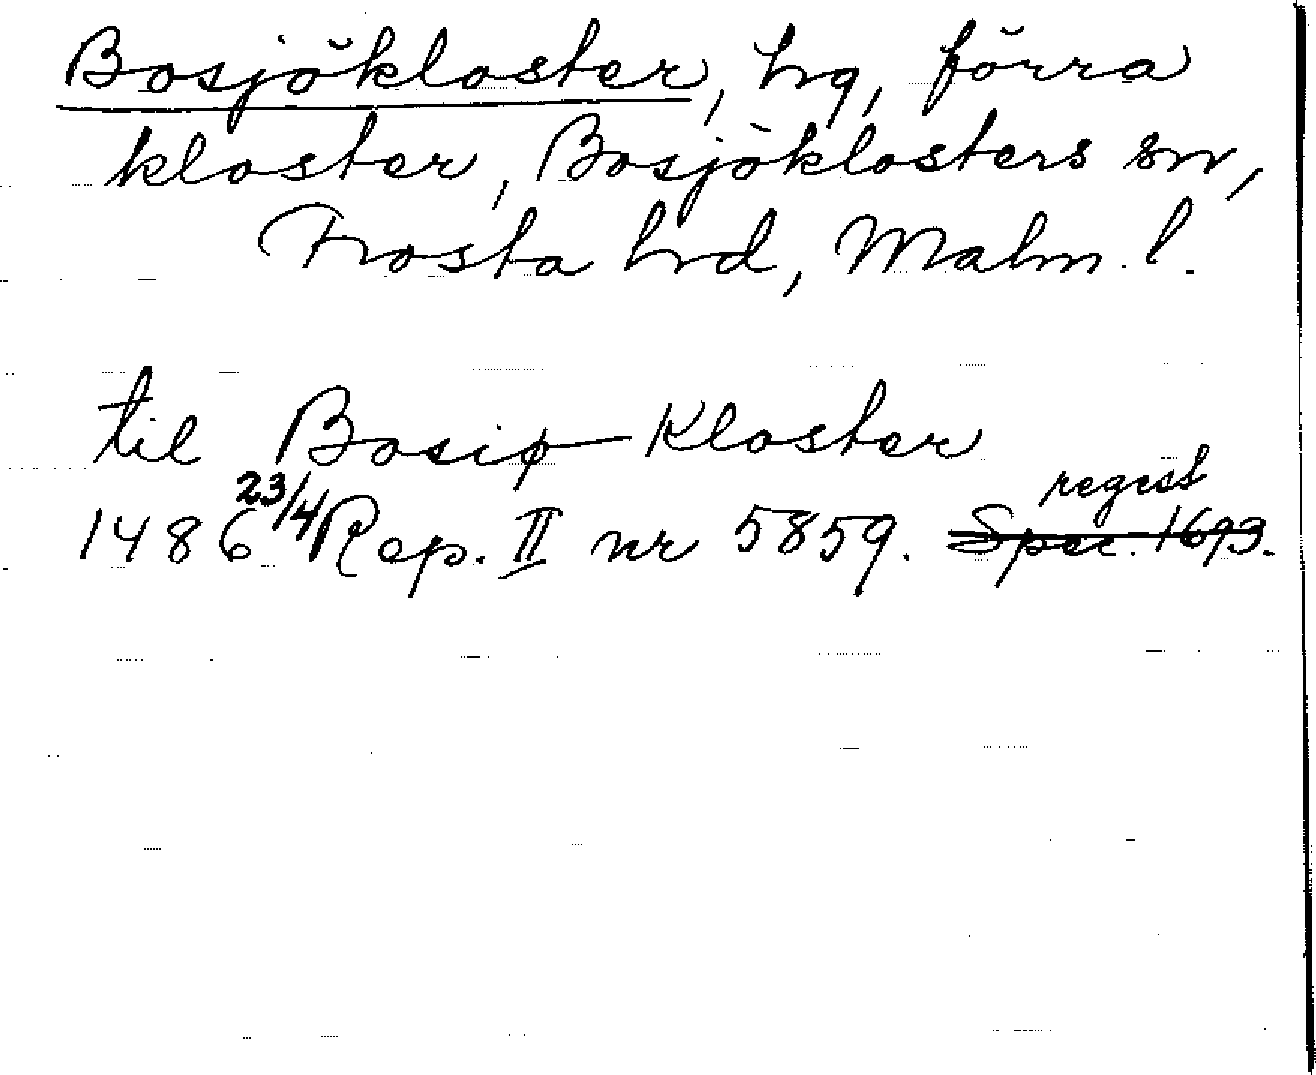 Bosjökloster, hg, förra
kloster, Bosjöklosters sn,
Frosta hrd, Malm. l.
til Bosiø Kloster
1486 23/4 Rep. II nr 5859. regest
Spec. 1693.